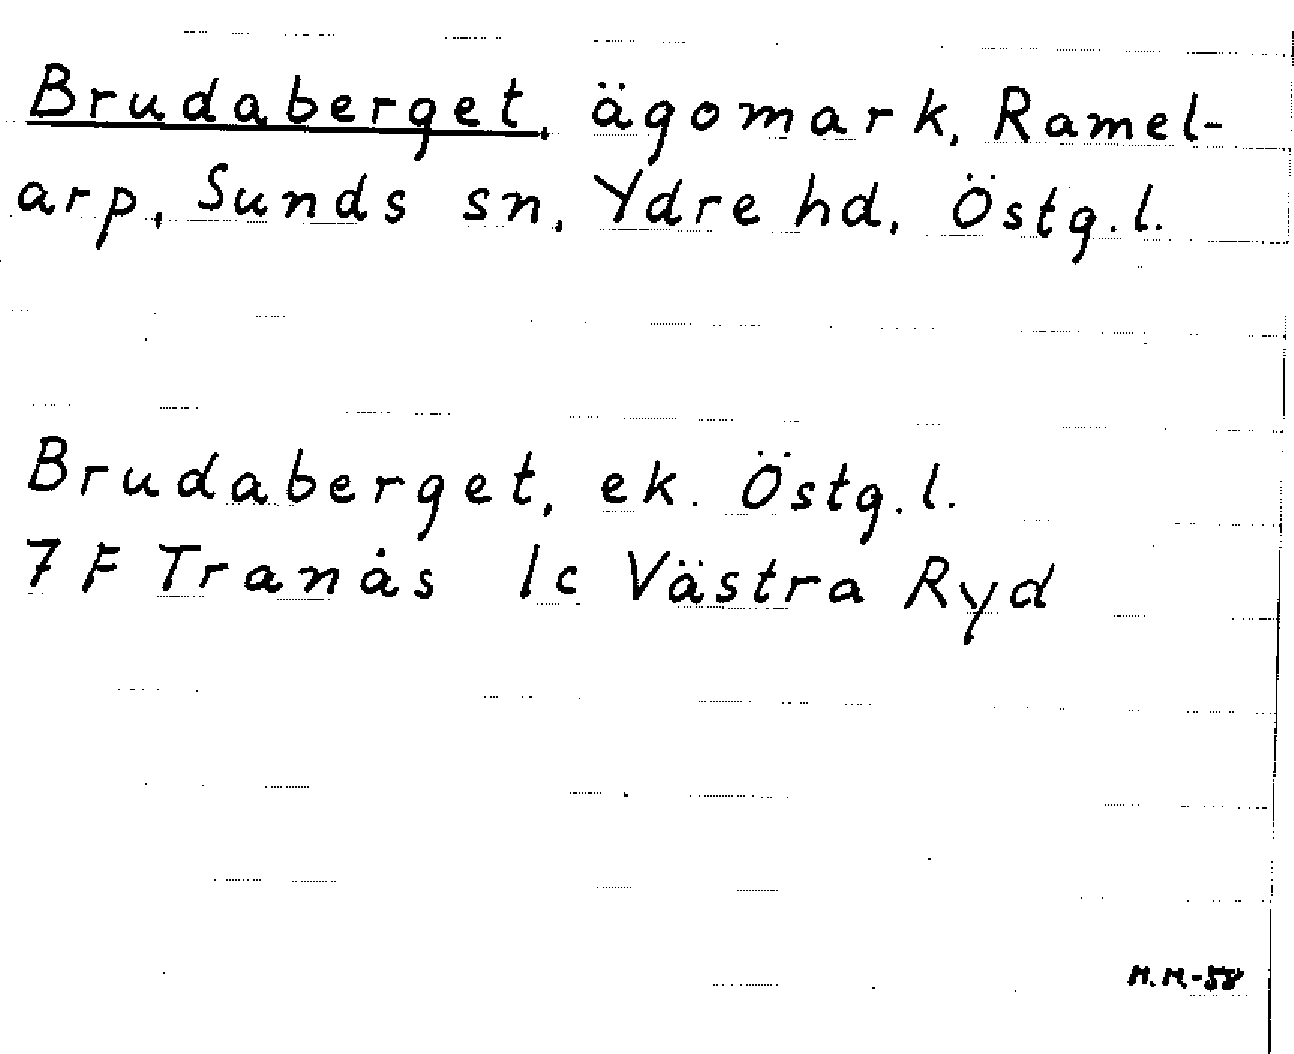 Brudaberget, ägomark, Ramel-
arp, Sunds sn, Ydre hd, Östg.l.
Brudaberget, ek. Östg.l.
7 F Tranås 1c Västra Ryd
M.M.-58